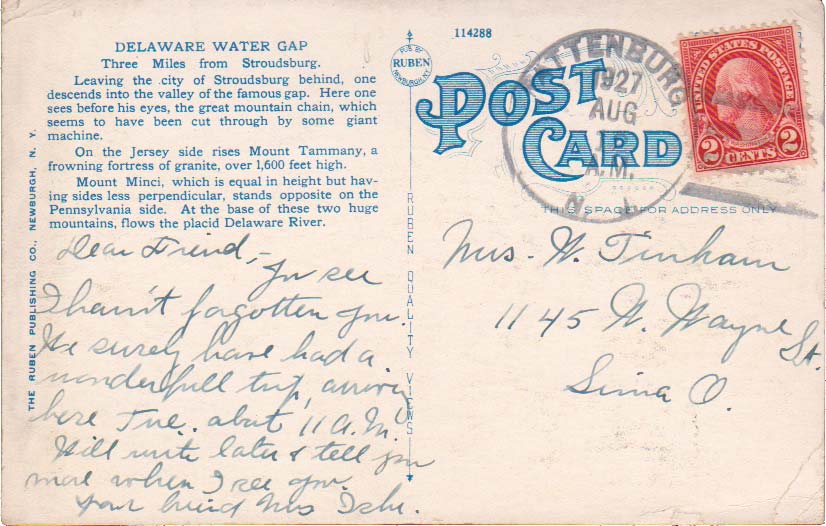 DELAWARE WATER GAP
Three Miles from Stroudsburg.
Leaving the city of Stroudsburg behind, one
descends into the valley of the famous gap. Here one
sees before his eyes, the great mountain chain, which
seems to have been cut through by some giant
machine.
On the Jersey side rises Mount Tammany, a
frowning fortress of granite, over 1,600 feet high.
Mount Minci, which is equal in height but hav-
ing sides less perpendicular, stands opposite on the
Pennsylvania side. At the base of these two huge
mountains, flows the placid Delaware River.
THE RUBEN PUBLISHING CO., NEWBURGH, N. Y.
Dear Friend,-
You see
I hain't forgotten you.
We surely have had a
wonderfull trip, arriving
here Tue. about 11 A.M.
Will write later & tell you
more when I see you.
Your friend Mrs
PUB BY
RUBEN
NEWBURGH, N.Y.
RUBEN QUALITY VIEWS
114288
POST
CARD
THIS SPACE FOR ADDRESS ONLY
TTENBURG
1927
AUG
A.M.
N.J.
UNITED STATES POSTAGE
2 CENTS 2
Mrs. W. Tinham
1145 W. Wayne
St.
Lima O.